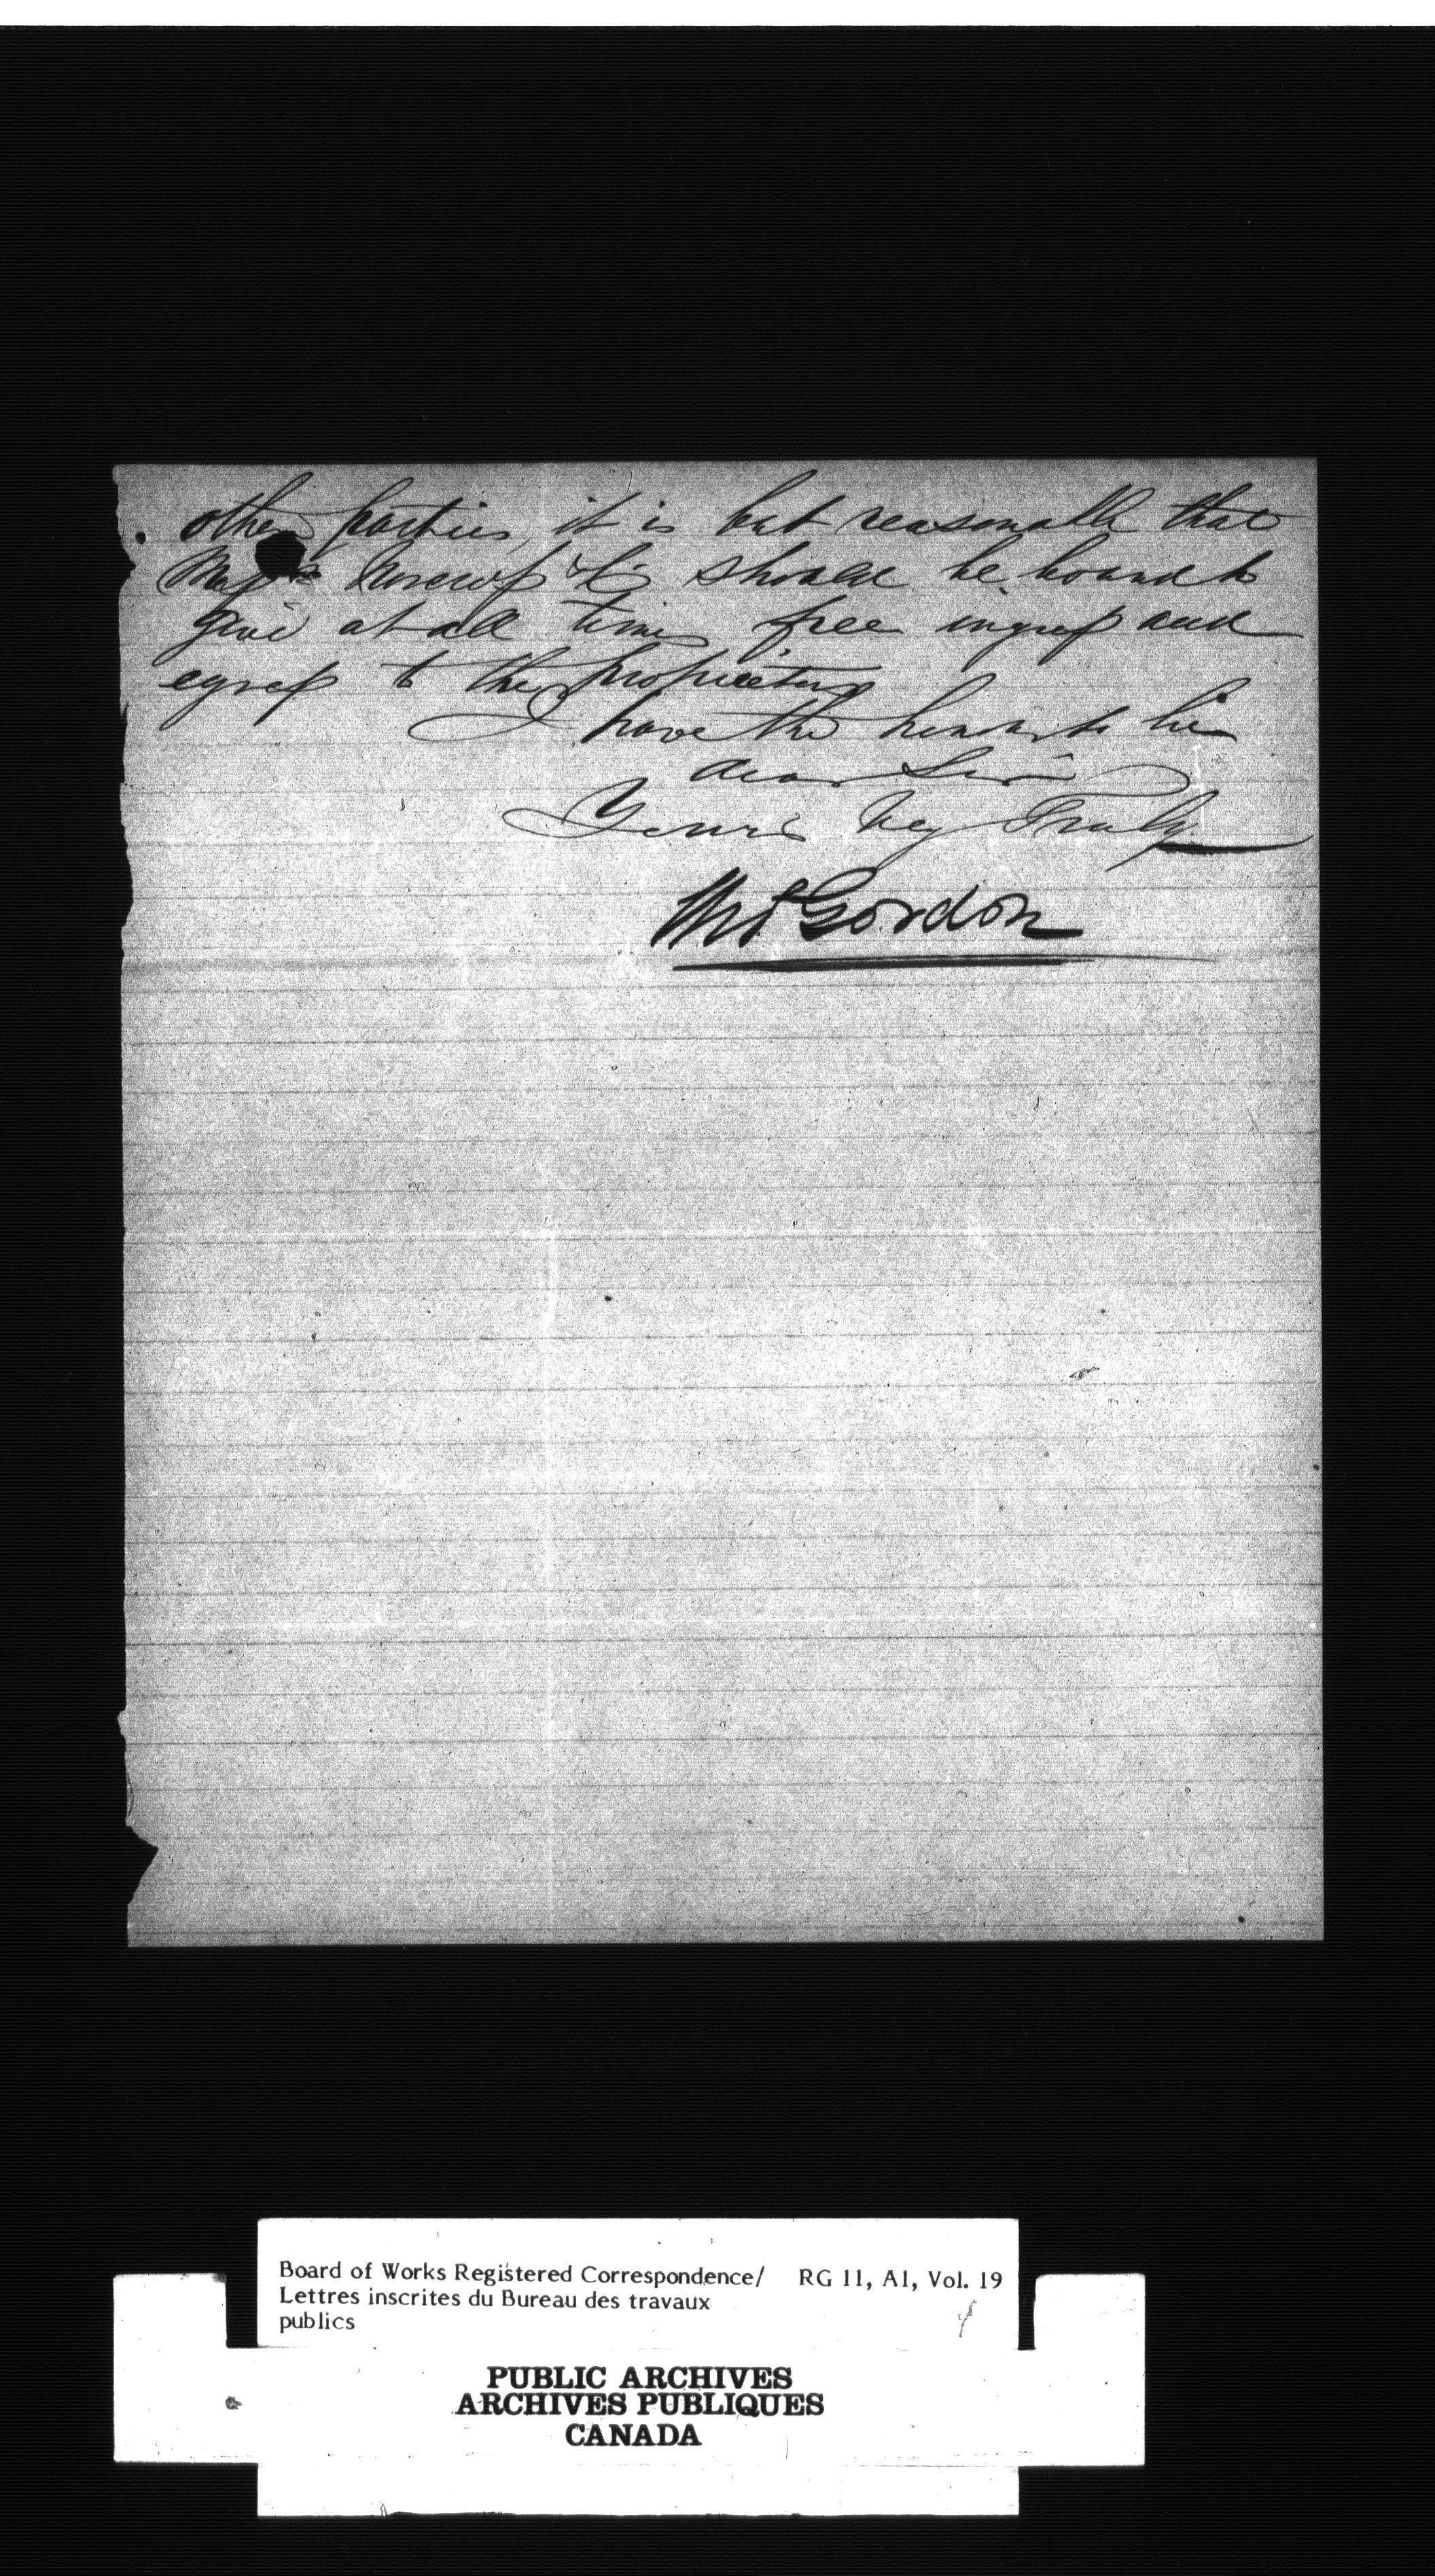 other parties, it is but reasonable that
should be bound to
give at all times free ingress and
egress to the proprietors
I have the honor to be
dear Sir
Yours very Truly
Gordon
Board of Works Registered Correspondence/ RG 11, A1, Vol. 19
Lettres inscrites du Bureau des travaux
publics
PUBLIC ARCHIVES
ARCHIVES PUBLIQUES
CANADA